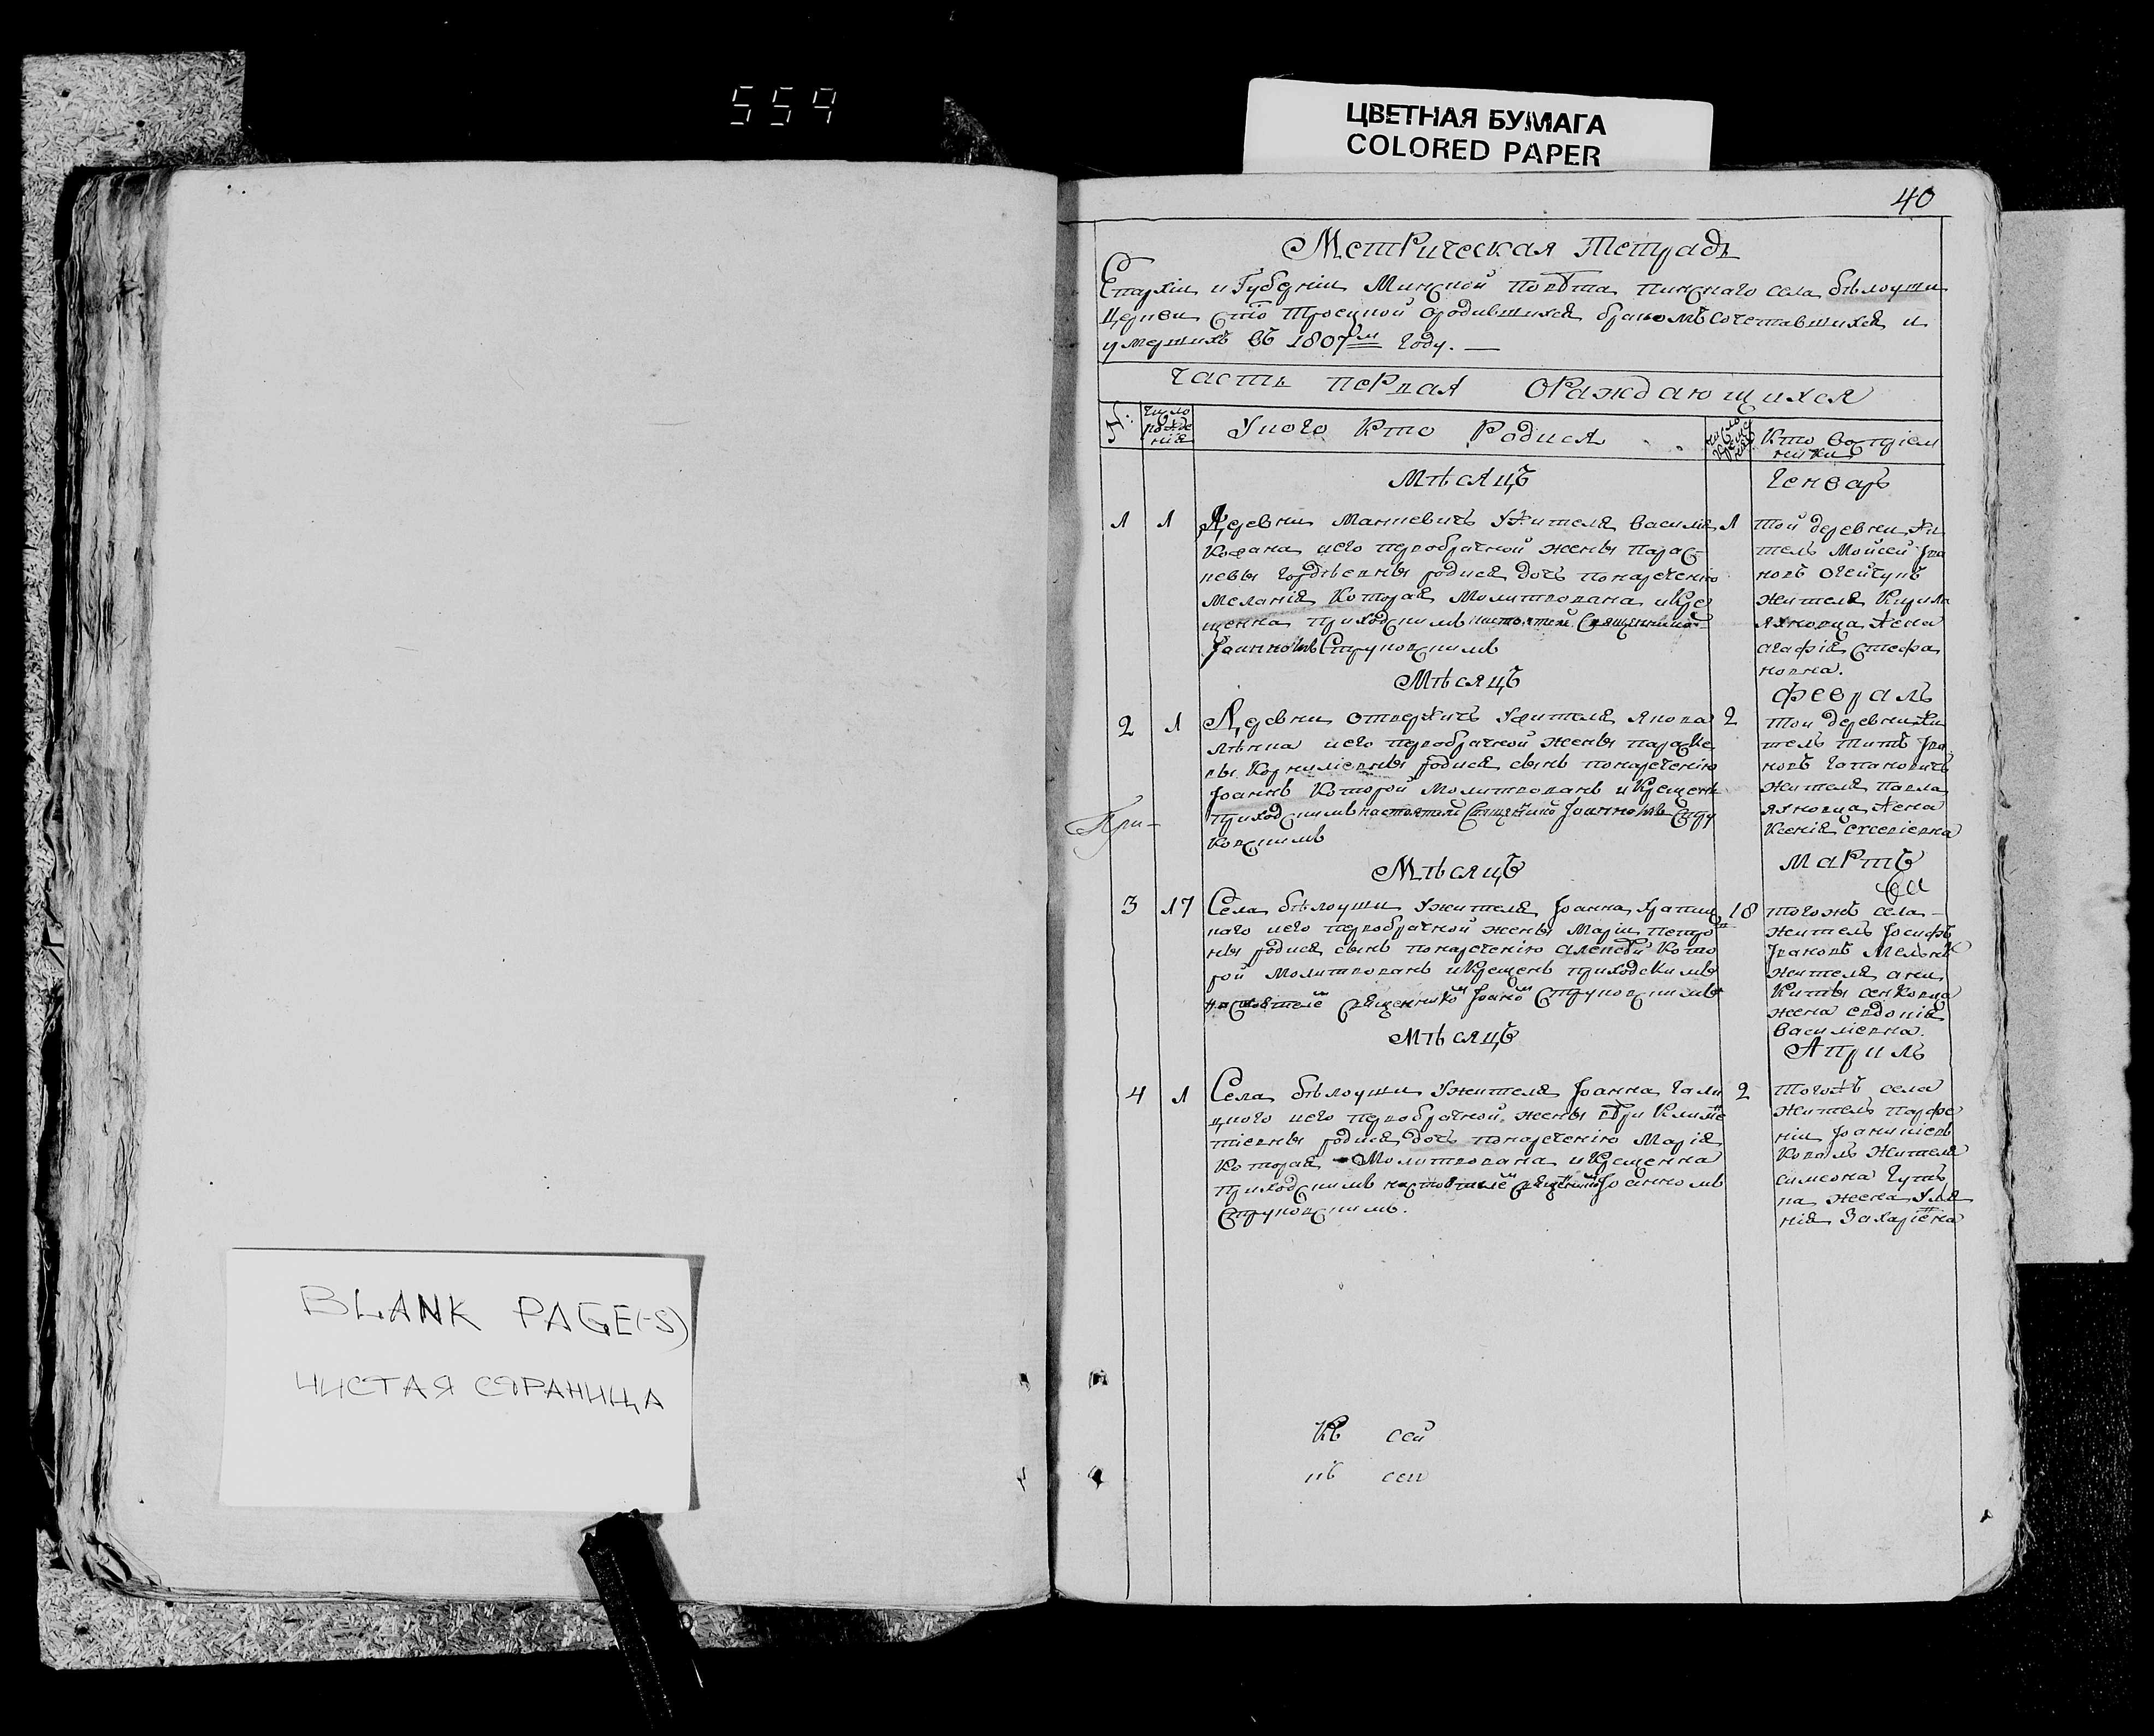 559
ЦВЕТНАЯ БУМАГА
COLORED PAPER
BLANK PAGE(-S)
ЧИСТАЯ СТРАНИЦА
40
Метрическая Тетрадь
Епархіи и Губерніи Минской повѣта пинскаго села бѣлоуши
Церкви Сто Троецкой ородившихся бракомъ сочетавшихся и
умершихъ въ 1807м году. —
часть первая ораждающихся
№:
число рожденія
Укого Кто Родися
число крещенія
Кто воспріемники
Мѣсяцъ
Генварь
1
1
Деревни Манневичъ Ужителя васили
Кохана иего первобрачной жены Парас-
кевы гордѣевны родися дочь понаречению
Меланія Которая Молитвована икре
щенна приходскимъ настоятелѣ Священникомъ
Іоанномъ Струковскимъ
1
той деревни жи
тель Мойсей Іва
новъ
жителя Кирила
яхновца жена
агафія Стефа
новна.
Мѣсяцъ
Февраль
2
1
Деревни отвержичъ Ужителя якова
иего первобрачной жены параске
вы Корниліевны родися сынъ понаречению
Іоаннъ Которой Молитвованъ и Крещенъ
приходскимъ настоятелѣ Священико Іоанномъ Стру
ковскимъ
2
той деревни жи
тель титъ Іва
новъ
жителя павла
яхновца жена
Ксенія евсевіевна
При-
Мѣсяцъ
Мартъ
3
17
Села бѣлоуши Ужителя Іоанна
наго иего первобрачной жены Маріи петро
ны родися сынъ понаречению алексѣй Кото
рой Молитвованъ икрещенъ приходскимъ
настоятеле священнико Іоано Струковскимъ
18
тогожъ села
житель Іосифъ
Івановъ
жителя ани
Киты сенковца
жена евдокія
Василіевна.
Мѣсяцъ
Апрѝль
4
1
Села бѣлоуши Ужителя Іоанна гали
цкого иего первобрачной жены Климе
тіевны родися дочь понаречению Марія
Которая Молитвована икрещенна
приходскимъ настоятеле священико Іоанномъ
Струковскимъ.
2
тогожъ села
житель парфе
ній
Коваль жителя
симеона
на жена Улья
нія Захаріена
Къ сей
къ сеи